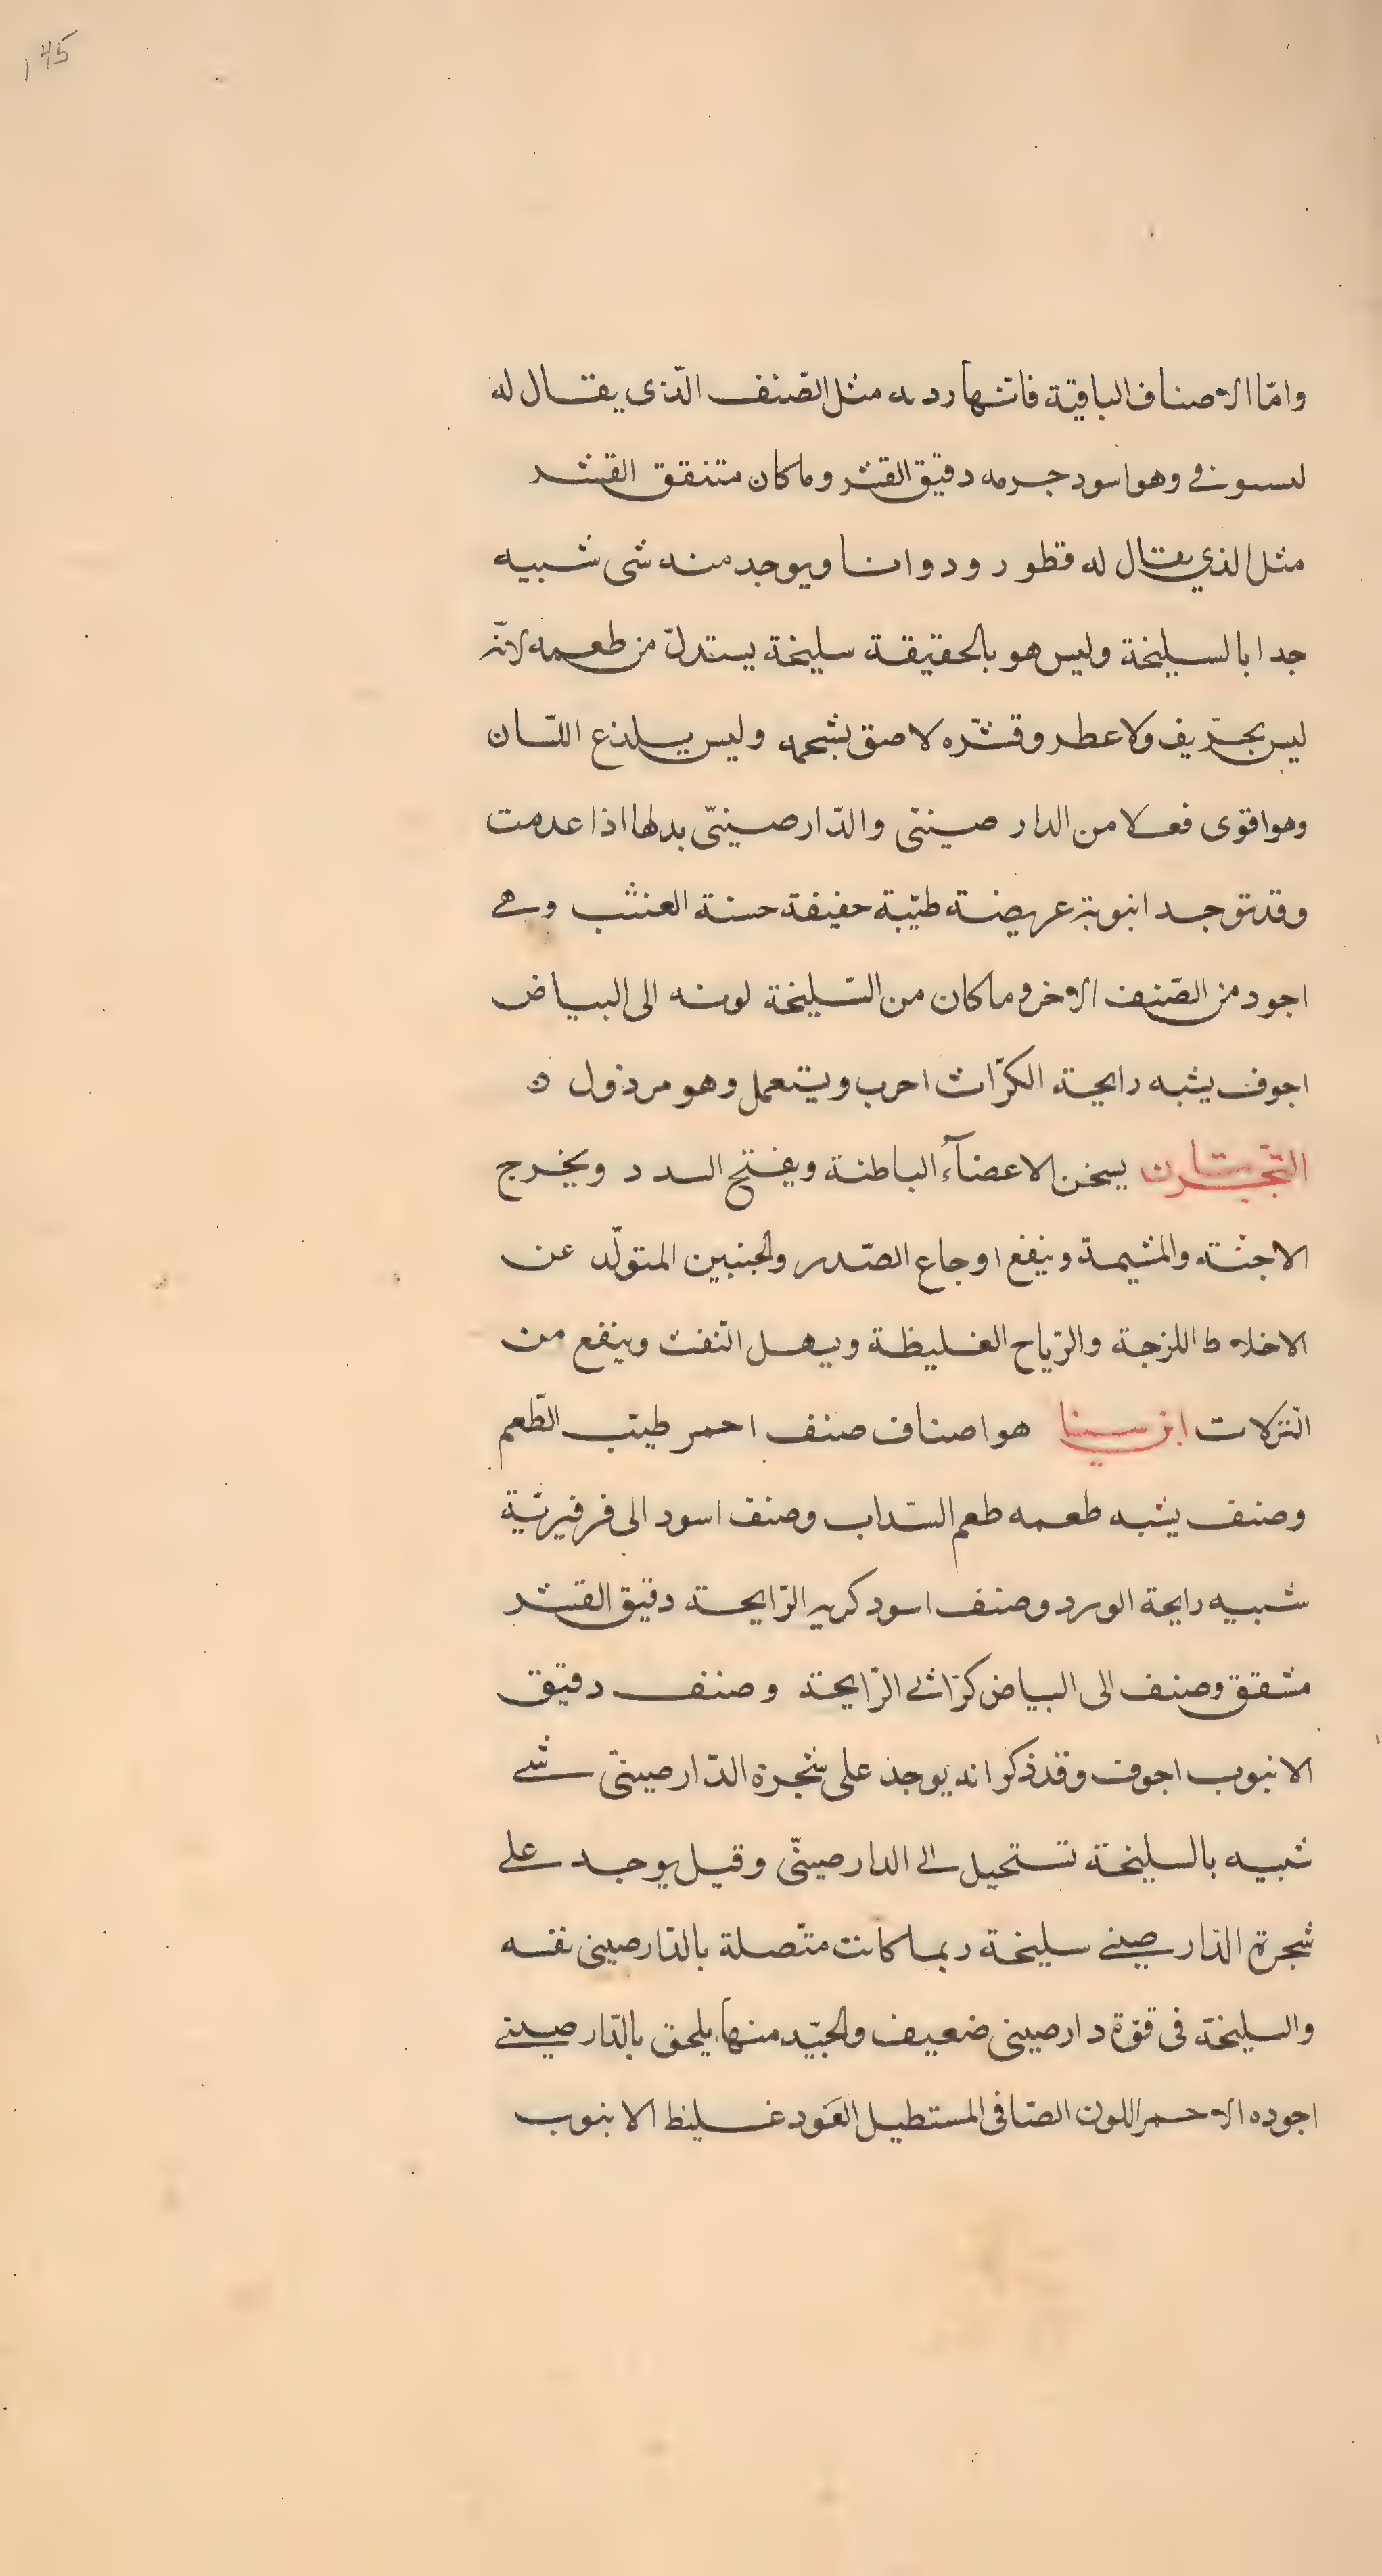 145
وامّا الاصناف الباقيّة فانّها رديه مثل الصّنف الّذى يقال له
لىسىوفى وهو اسود جرمه دقيق القشر وماكان متشقق القشر
مثل الذي يقال له قطو رودوانا ويوجد منه شى شبيه
جدا بالسليخة وليس هو بالحقيقة سليخة يستدلّ من طعمه لانّه
ليس بحرّيف ولا عطر وقشره لاصق بشحمه وليس يلذع اللسان
وهو اقوى فعلا من الدار صينىّ والدّارصينىّ بدلها اذا عدمت
وقد توجد انبوبة عريضة طيّبة خفيفة حسنة العشب وهى
اجود من الصّنف الاخر وما كان من السّليخة لونه الى البياض
اجوف يشبه رايحة الكرّاث احرب ويستعمل وهو مرذول ه
التجربتان يسخن الاعضآء الباطنة ويفتح السدد ويخرج
الاجنّة والمشيمة وينفع اوجاع الصّدر والجنبين المتولّد عن
الاخلاط اللزجة والرّياح الغليظة ويسهل النّفث وينفع من
النّزلات ابن سينا هو اصناف صنف احمر طيّب الطّعم
وصنف يشبه طعمه طعم السّداب وصنف اسود الى فرفيريّة
شبيه رايحة الورد وصنف اسود كريه الرّايحة دقيق القشر
مشقق وصنف الى البياض كرّاثى الرّايحة وصنف دقيق
الانبوب اجوف وقد ذكر انه يوجد على شجرة الدّارصينىّ شى
شبيه بالسليخة تستحيل الى الدارصينىّ وقيل يوجد على
شجرة الدّارصينى سليخة ربما كانت متّصلة بالدّارصينى نفسه
والسليخة فى قوّة دارصينى ضعيف والجيّد منها يلحق بالدّارصينى
اجوده الاحمر اللون الصّافى المستطيل العَود غليظ الانبوب